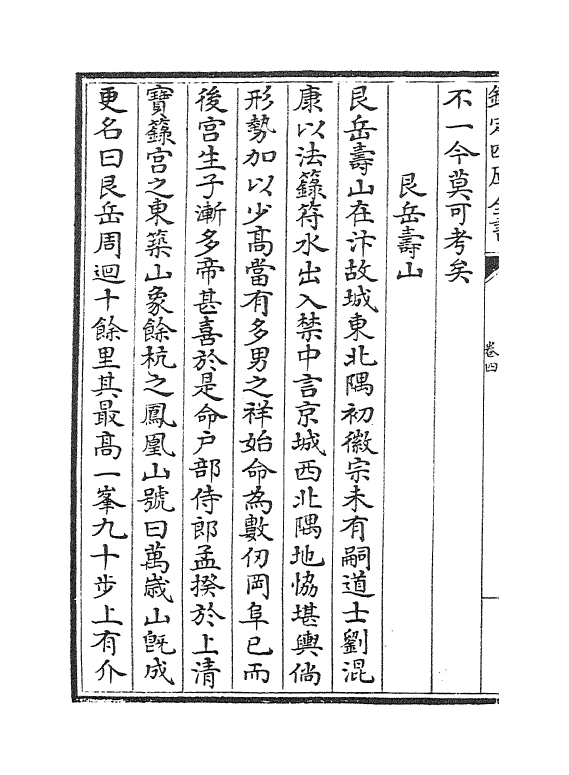 欽定四庫全書
卷四
不一今莫可考矣
艮岳壽山
艮岳壽山在汴故城東北隅初徽宗未有嗣道士劉混
康以法籙符水出入禁中言京城西北隅地恊堪輿倘
形勢加以少高當有多男之祥始命為數仞岡阜已而
後宫生子漸多帝甚喜於是命户部侍郎孟揆於上清
寶籙宫之東築山象餘杭之鳳凰山號曰萬歲山既成
更名曰艮岳周迴十餘里其最高一峯九十步上有介